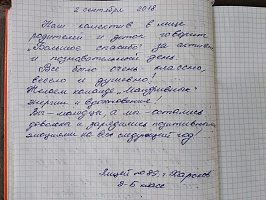 2 сентября 2018
Наш коллектив в лице
родителей и деток говорит
"Большое спасибо" за активн
и познавательный день.
Все было очень классно,
весело и душевно!
Желаем команде
энергии и вдохновения!
Вы - молодцы, а мы - остались
довольны и зарядились позитивными
эмоциями на весь следующий год!
Лицей № 89, г. Харьков
2-Б класс